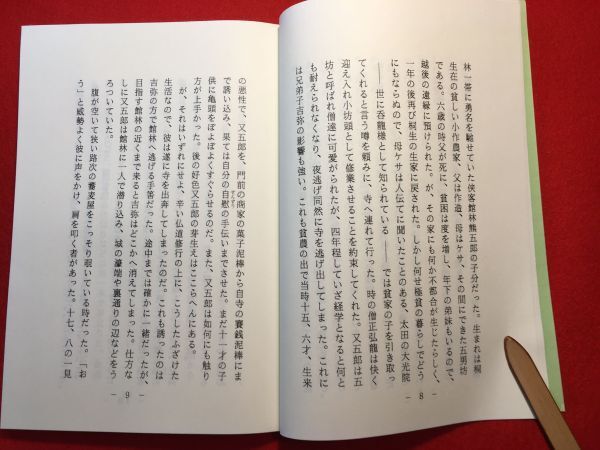 林一帯に勇名を馳せていた侠客館林熊五郎の子分だった。生まれは桐
生在の貧しい小作農家、父は作造、母はケサ、その間にできた五男坊
である。六歳の時父が死に、貧困は度を増し、年下の弟妹もいるので、
越後の遠縁に預けられた。が、その家にも何か不都合が生じたらしく、
一年の後再び桐生の生家に戻された。しかし何せ極貧の暮らしでどう
にもならぬので、母ケサは人伝てに聞いたことのある、太田の大光院
――世に呑龍様として知られている――では貧家の子を引き取っ
てくれると言う噂を頼みに、寺へ連れて行った。時の僧正弘龍は快く
迎え入れ小坊頭として修業させることを約束してくれた。又五郎は五
坊と呼ばれ僧達に可愛がられたが、四年程していざ経学となると何と
も耐えられなくなり、夜逃げ同然に寺を逃げ出してしまった。これに
は兄弟子吉弥の影響も強い。これも貧農の出で当時十五、六才、生来
- 8 -
が、それはいずれにせよ、辛い仏道修行の上に、こうしたふざけた
生活なので、彼は遂に寺を出奔してしまったのだ。これも誘ったのは
吉弥の方で館林へ逃げる手筈だった。途中までは確かに一緒だったが、
目指す館林の近くまで来ると吉弥はどこかへ消えてしまった。仕方な
しに又五郎は館林に一人で潜り込み、城の濠端や裏通りの辺などをう
ろついていた。
腹が空いて狭い路次の蕎麦屋をこっそり覗いている時だった。「お
う」と威勢よく彼に声をかけ、肩を叩く者があった。十七、八の一見
- 9 -